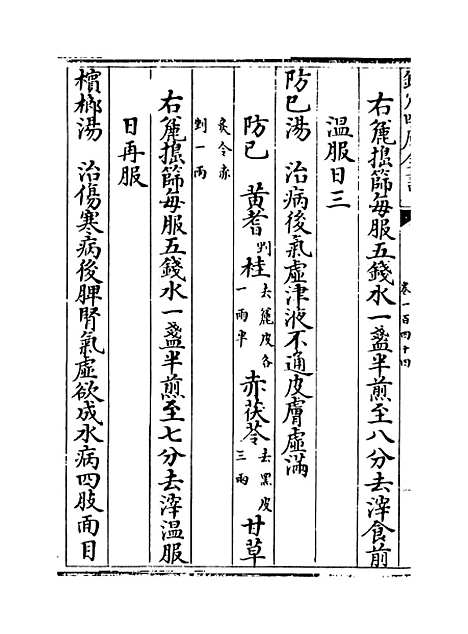 欽定四庫全書
卷一百四十四
右麄擣篩每服五錢水一盞半煎至八分去滓食前
溫服日三
防已湯 治病後氣虛津液不通皮膚虛滿
防已 黃耆剉 桂去麄皮各一兩半 赤茯苓去黑皮三兩 甘草
炙令赤剉一兩
右麄擣篩每服五錢水一盞半煎至七分去滓溫服
日再服
檳榔湯 治傷寒病後脾腎氣虛欲成水病四肢面目